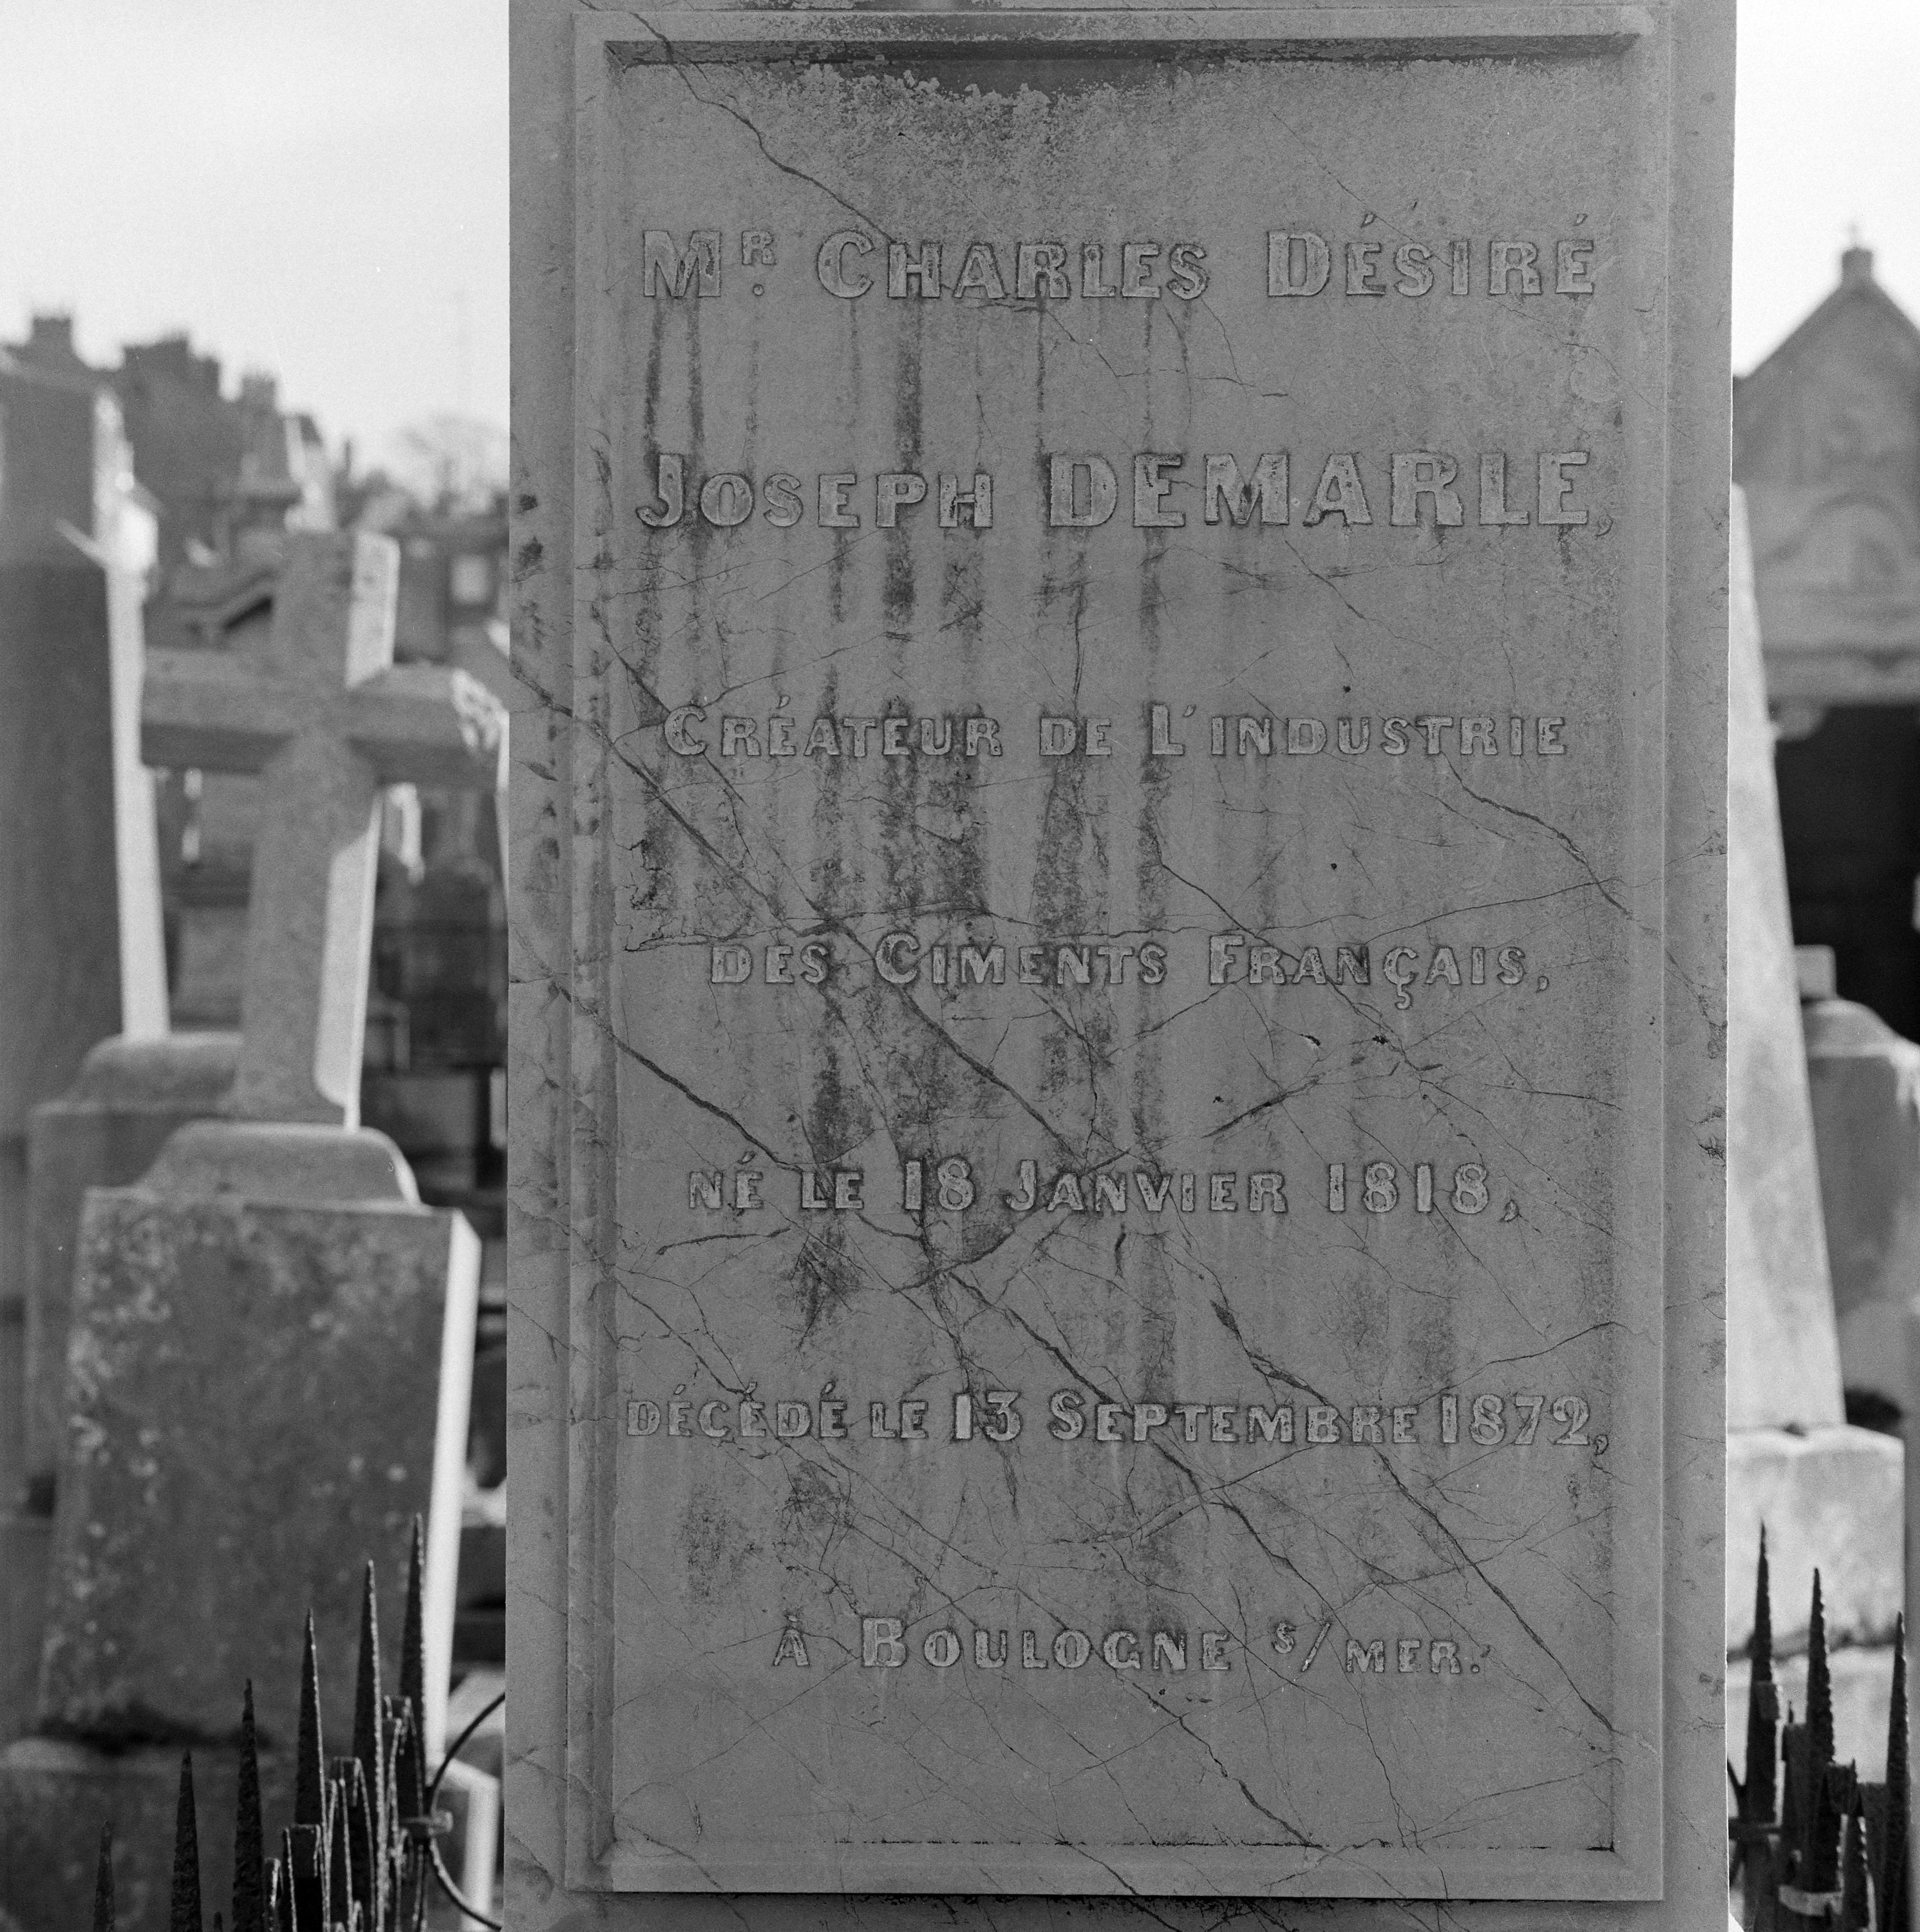 Mʀ. Charles Désiré
Joseph DEMARLE,
Créateur de L'industrie
des Ciments Français,
né le 18 Janvier 1818,
décédé le 13 Septembre 1872,
à Boulogne s/mer.